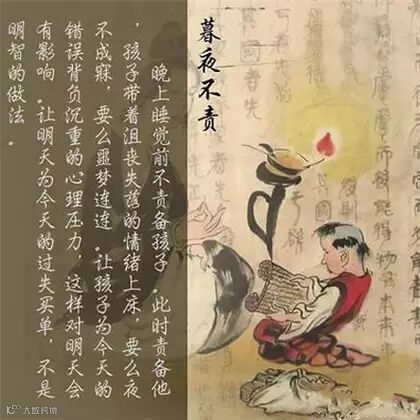 暮夜不责
晚上睡觉前不责备孩子.此时责备他
,孩子带着沮丧失落的情绪上床,要么夜
不成寐,要么噩梦连连.让孩子为今天的
错误背负沉重的心理压力,这样对明天会
有影响.让明天为今天的过失买单,不是
明智的做法.
大数跨境